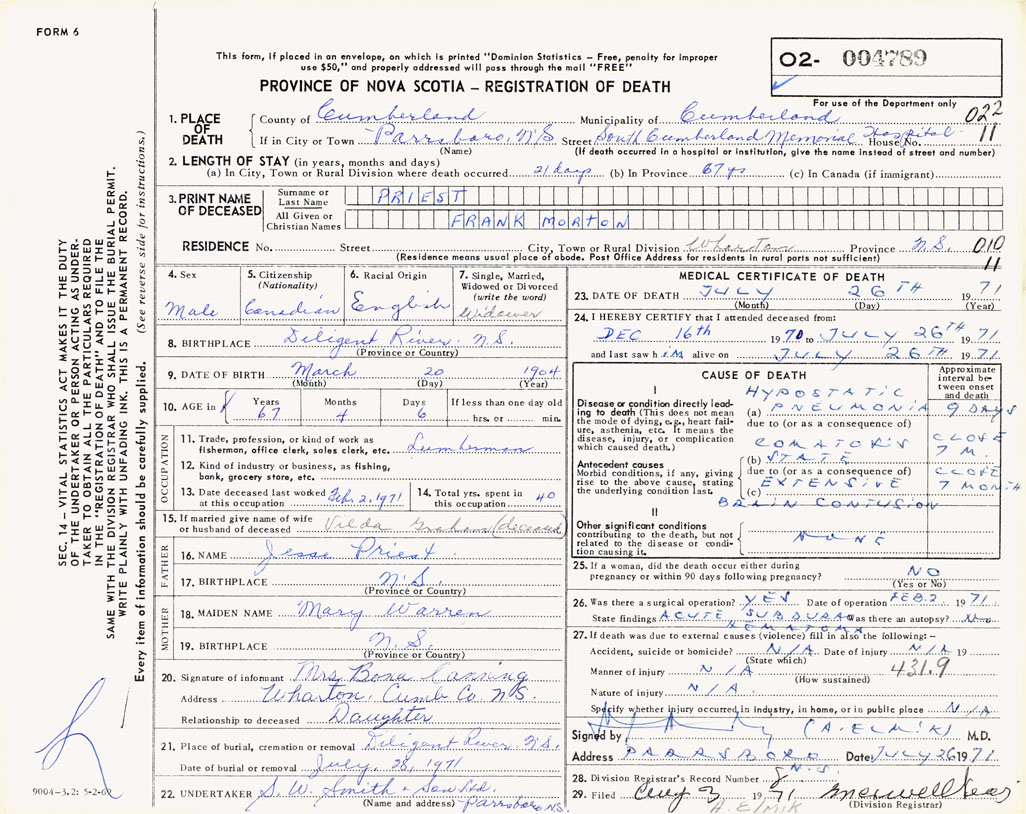 FORM 6
This form, if placed in an envelope, on which is printed "Dominion Statistics – Free, penalty for improper
use $50," and properly addressed will pass through the mail "FREE"
02- 004789
For use of the Department only
PROVINCE OF NOVA SCOTIA – REGISTRATION OF DEATH
022
11
1. PLACE OF DEATH
County of Cumberland Municipality of Cumberland
If in City or Town Parrsboro, N.S. Street South Cumberland Memorial Hospital House No.
(Name) (If death occurred in a hospital or institution, give the name instead of street and number)
2. LENGTH OF STAY (in years, months and days)
(a) In City, Town or Rural Division where death occurred 21 days (b) In Province 67 yrs (c) In Canada (if immigrant)
3. PRINT NAME OF DECEASED
Surname or Last Name PRIEST
All Given or Christian Names FRANK MORTON
RESIDENCE No. Street City, Town or Rural Division Wharton Province N.S. 010
(Residence means usual place of abode. Post Office Address for residents in rural parts not sufficient) 11
4. Sex Male
5. Citizenship (Nationality) Canadian
6. Racial Origin English
7. Single, Married, Widowed or Divorced (write the word) Widower
8. BIRTHPLACE Diligent River, N.S.
(Province or Country)
9. DATE OF BIRTH March 20 1904
(Month) (Day) (Year)
10. AGE in Years Months Days If less than one day old
67 4 6 hrs. or min.
OCCUPATION
11. Trade, profession, or kind of work as
fisherman, office clerk, sales clerk, etc. Lumberman
12. Kind of industry or business, as fishing,
bank, grocery store, etc.
13. Date deceased last worked at this occupation Feb. 2, 1971
14. Total yrs. spent in this occupation 40
15. If married give name of wife
or husband of deceased Vilda Graham (deceased)
FATHER
16. NAME Jesse Priest
17. BIRTHPLACE N.S.
(Province or Country)
MOTHER
18. MAIDEN NAME Mary Warren
19. BIRTHPLACE N.S.
(Province or Country)
20. Signature of informant Mrs
Address Wharton, Cumb Co N.S.
Relationship to deceased Daughter
21. Place of burial, cremation or removal Diligent River, N.S.
Date of burial or removal July, 28, 1971
22. UNDERTAKER S. W. Smith & Son Ltd.
(Name and address) Parrsboro, N.S.
MEDICAL CERTIFICATE OF DEATH
23. DATE OF DEATH JULY 26TH 1971
(Month) (Day) (Year)
24. I HEREBY CERTIFY that I attended deceased from:
DEC 16th 1970 to JULY 26TH 1971
and last saw him alive on JULY 26TH 1971
CAUSE OF DEATH
Approximate interval between onset and death
I
Disease or condition directly leading to death (This does not mean the mode of dying, e.g., heart failure, asthenia, etc. It means the disease, injury, or complication which caused death.)
HYPOSTATIC
(a) PNEUMONIA 9 DAYS
due to (or as a consequence of)
Antecedent causes
Morbid conditions, if any, giving rise to the above cause, stating the underlying condition last.
COMATOR'S CLOSE
(b) STATE 7 M.
due to (or as a consequence of) CLOSE
EXTENSIVE 7 MONTH
(c)
BRAIN CONTUSION
II
Other significant conditions
contributing to the death, but not related to the disease or condition causing it.
NONE
25. If a woman, did the death occur either during
pregnancy or within 90 days following pregnancy? NO
(Yes or No)
26. Was there a surgical operation? YES Date of operation FEB.2 1971
State findings ACUTE SUBDURAL Was there an autopsy? No
HEMATOMA
27. If death was due to external causes (violence) fill in also the following:–
Accident, suicide or homicide? N/A Date of injury N/A 19
(State which)
Manner of injury N/A 431.9
(How sustained)
Nature of injury N/A.
Specify whether injury occurred in industry, in home, or in public place N/A
Signed by (A. ELMIK) M.D.
Address PARRSBORO Date: JULY 26 1971
N.S.
28. Division Registrar's Record Number 8
29. Filed Aug 3 1971
A. Elmik (Division Registrar)
SEC. 14 – VITAL STATISTICS ACT MAKES IT THE DUTY
OF THE UNDERTAKER OR PERSON ACTING AS UNDER-
TAKER TO OBTAIN ALL THE PARTICULARS REQUIRED
IN THE "REGISTRATION OF DEATH" AND TO FILE THE
SAME WITH THE DIVISION REGISTRAR WHO SHALL ISSUE THE BURIAL PERMIT.
WRITE PLAINLY WITH UNFADING INK. THIS IS A PERMANENT RECORD.
Every item of information should be carefully supplied. (See reverse side for instructions.)
9004-3.2: 5-2-69